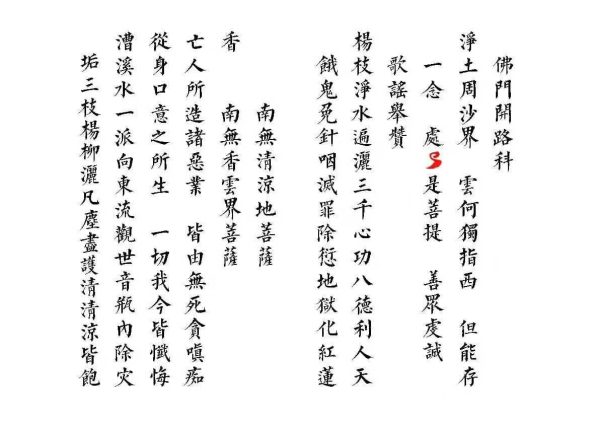 佛門開路科
淨土周沙界 雲何獨指西 但能存
一念 處 是菩提 善眾虔誠
歌謠舉贊
楊枝淨水遍灑三千心功八德利人天
餓鬼免針咽滅罪除愆地獄化紅蓮
南無清涼地菩薩
香 南無香雲界菩薩
亡人所造諸惡業 皆由無死貪嗔痴
從身口意之所生 一切我今皆懺悔
漕溪水一派向東流觀世音瓶內除灾
垢三枝楊柳灑凡塵盡護清清涼皆飽